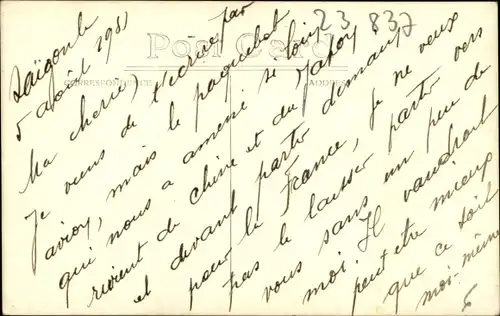 23 837
POST CARD
CORRESPONDENCE
ADDRESS
Saïgon le
5 Août 1931
Ma cherie,
Je viens de t'écrire par
avion, mais le paquebot
qui nous a amené si loin
revient de chine et du Japon
et devant partir demain
pour la France, je ne veux
pas le laisser partir vers
vous sans un peu de
moi. Il vaudrait
peut etre mieux
que ce soit
moi-même